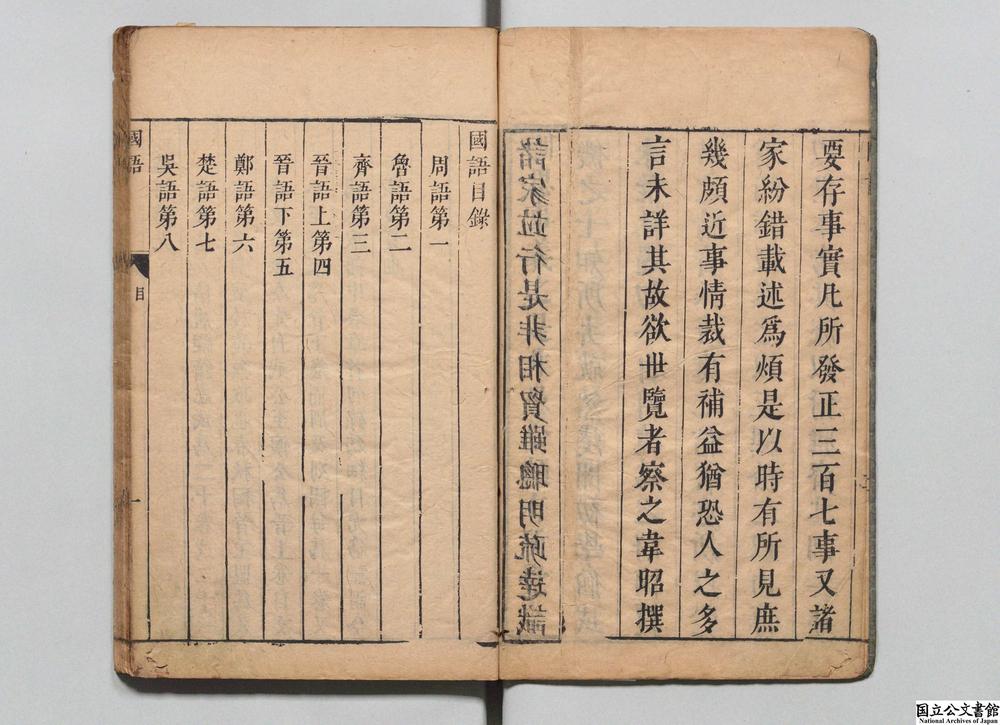 要存事實凡所發正三百七事又諸
家紛錯載述爲煩是以時有所見庶
幾頗近事情裁有補益猶恐人之多
言未詳其故欲世覽者察之韋昭撰
諸家並行是非相貿雖聰明疏達識
國語目錄
周語第一
魯語第二
齊語第三
晉語上第四
晉語下第五
鄭語第六
楚語第七
吳語第八
國語
目
一
国立公文書館
National Archives of Japan